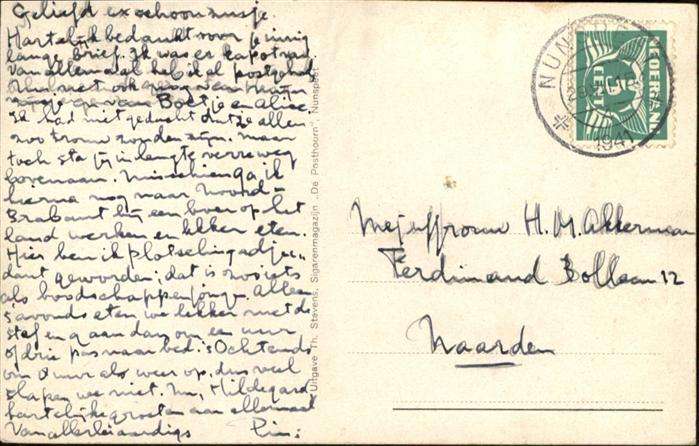 Geliefd exschoonzusje.
Hartelijk bedankt voor je innig
lange brief. Ik was er kapot van.
Van allemaal heb ik al post gehad
nu net ook
van Boetje en Aline
Ik had niet gedacht dat ze allen
zoo trouw zouden zijn. Maar
toch sta jij in lengte verreweg
bovenaan. Misschien ga ik
hierna nog naar Noord-
Brabant bij een boer op het
land werken en lekker eten.
Hier ben ik plotseling adju-
dant geworden; dat is zooiets
als boodschappenjongen. Alleen
's avonds eten we lekker met de
staf en gaan dan om een uur
of drie pas naar bed. 's Ochtends
om 8 uur als weer op, dus veel
slapen we niet. Nu, Hildegard
hartelijke groeten aan allemaal
Van allerleiaardigs Pim:
Uitgave Th. Stevens, Sigarenmagazijn „De Posthoorn", Nunspeet
NUNSPEET
1941
NEDERLAND
CENT
Mejuffrouw H. M. Akkerman
Ferdinand Bollaan 12
Naarden